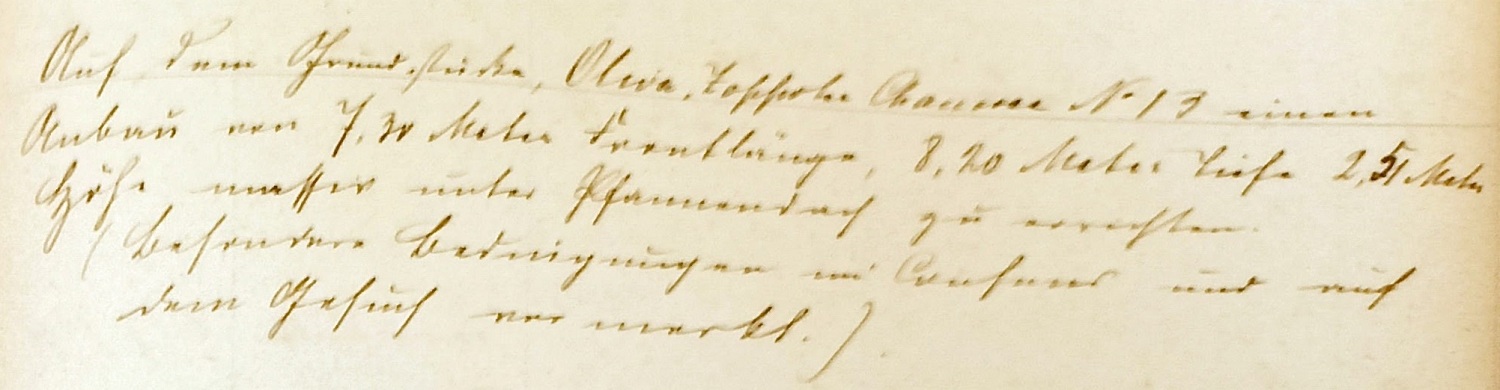 Auf dem Grundstücke, Oliva, Zoppoter Chaussee N° 13 einen
Anbau von 7,30 Meter Frontlänge, 8,20 Meter Tiefe 2,51 Meter
Höhe massiv unter Pfannendach zu errichten.
(Besondere Bedingungen im Consens und auf
dem Gesuch vermerkt.)